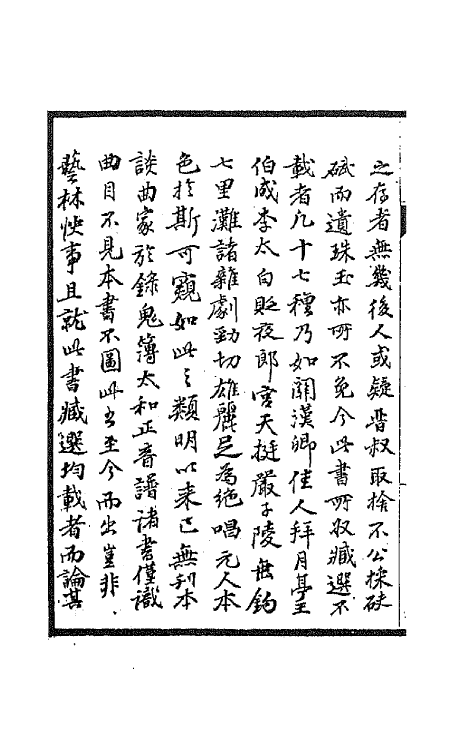 之存者無幾後人或疑晉叔取捨不公採砆
碔而遺珠玉亦所不免今此書所收臧選不
載者凡十七種乃如關漢卿佳人拜月亭王
伯成李太白貶夜郎宮天挺嚴子陵垂釣
七里灘諸雜劇勁切雄麗足為絶唱元人本
色於斯可窺如此之類明以来已無刋本
談曲家於錄鬼簿太和正音譜諸書僅識
曲目不見本書不圖此書至今而出豈非
藝林快事且就此書臧選均載者而論其